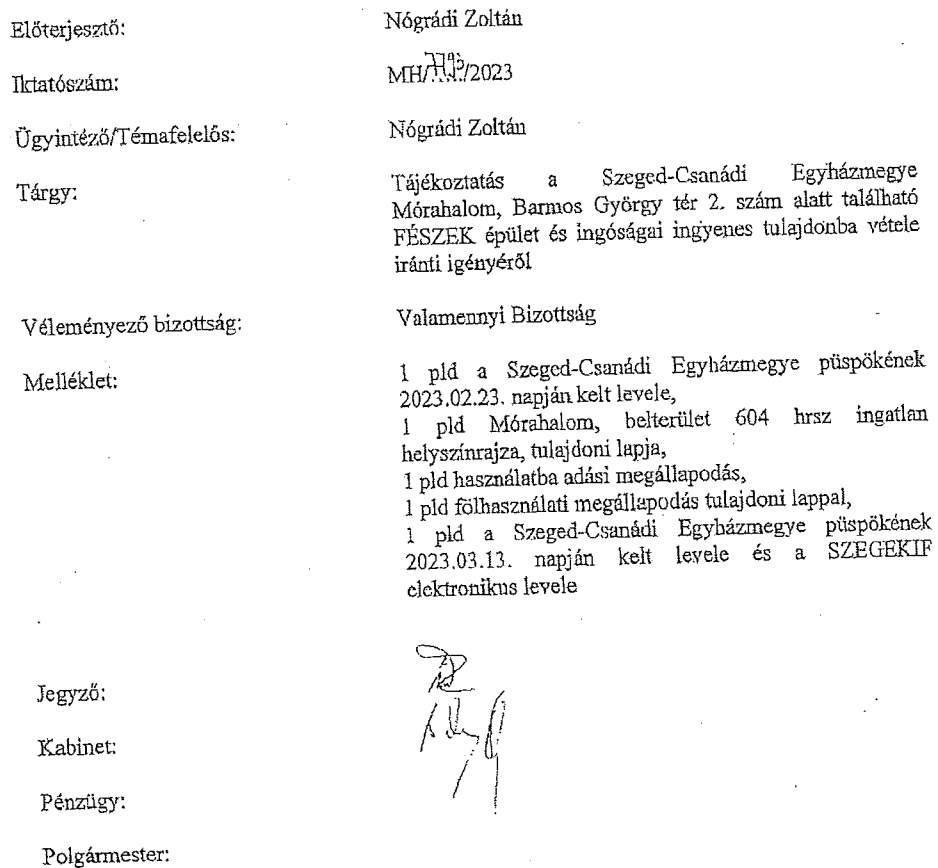 Előterjesztő: Nógrádi Zoltán
Iktatószám: MH/.../2023
Ügyintéző/Témafelelős: Nógrádi Zoltán
Tárgy: Tájékoztatás a Szeged-Csanádi Egyházmegye
Mórahalom, Barmos György tér 2. szám alatt található
FÉSZEK épület és ingóságai ingyenes tulajdonba vétele
iránti igényéről
Véleményező bizottság: Valamennyi Bizottság
Melléklet: 1 pld a Szeged-Csanádi Egyházmegye püspökének
2023.02.23. napján kelt levele,
1 pld Mórahalom, belterület 604 hrsz ingatlan
helyszínrajza, tulajdoni lapja,
1 pld használatba adási megállapodás,
1 pld fölhasználati megállapodás tulajdoni lappal,
1 pld a Szeged-Csanádi Egyházmegye püspökének
2023.03.13. napján kelt levele és a SZEGEKIF
elektronikus levele
Jegyző:
Kabinet:
Pénzügy:
Polgármester: